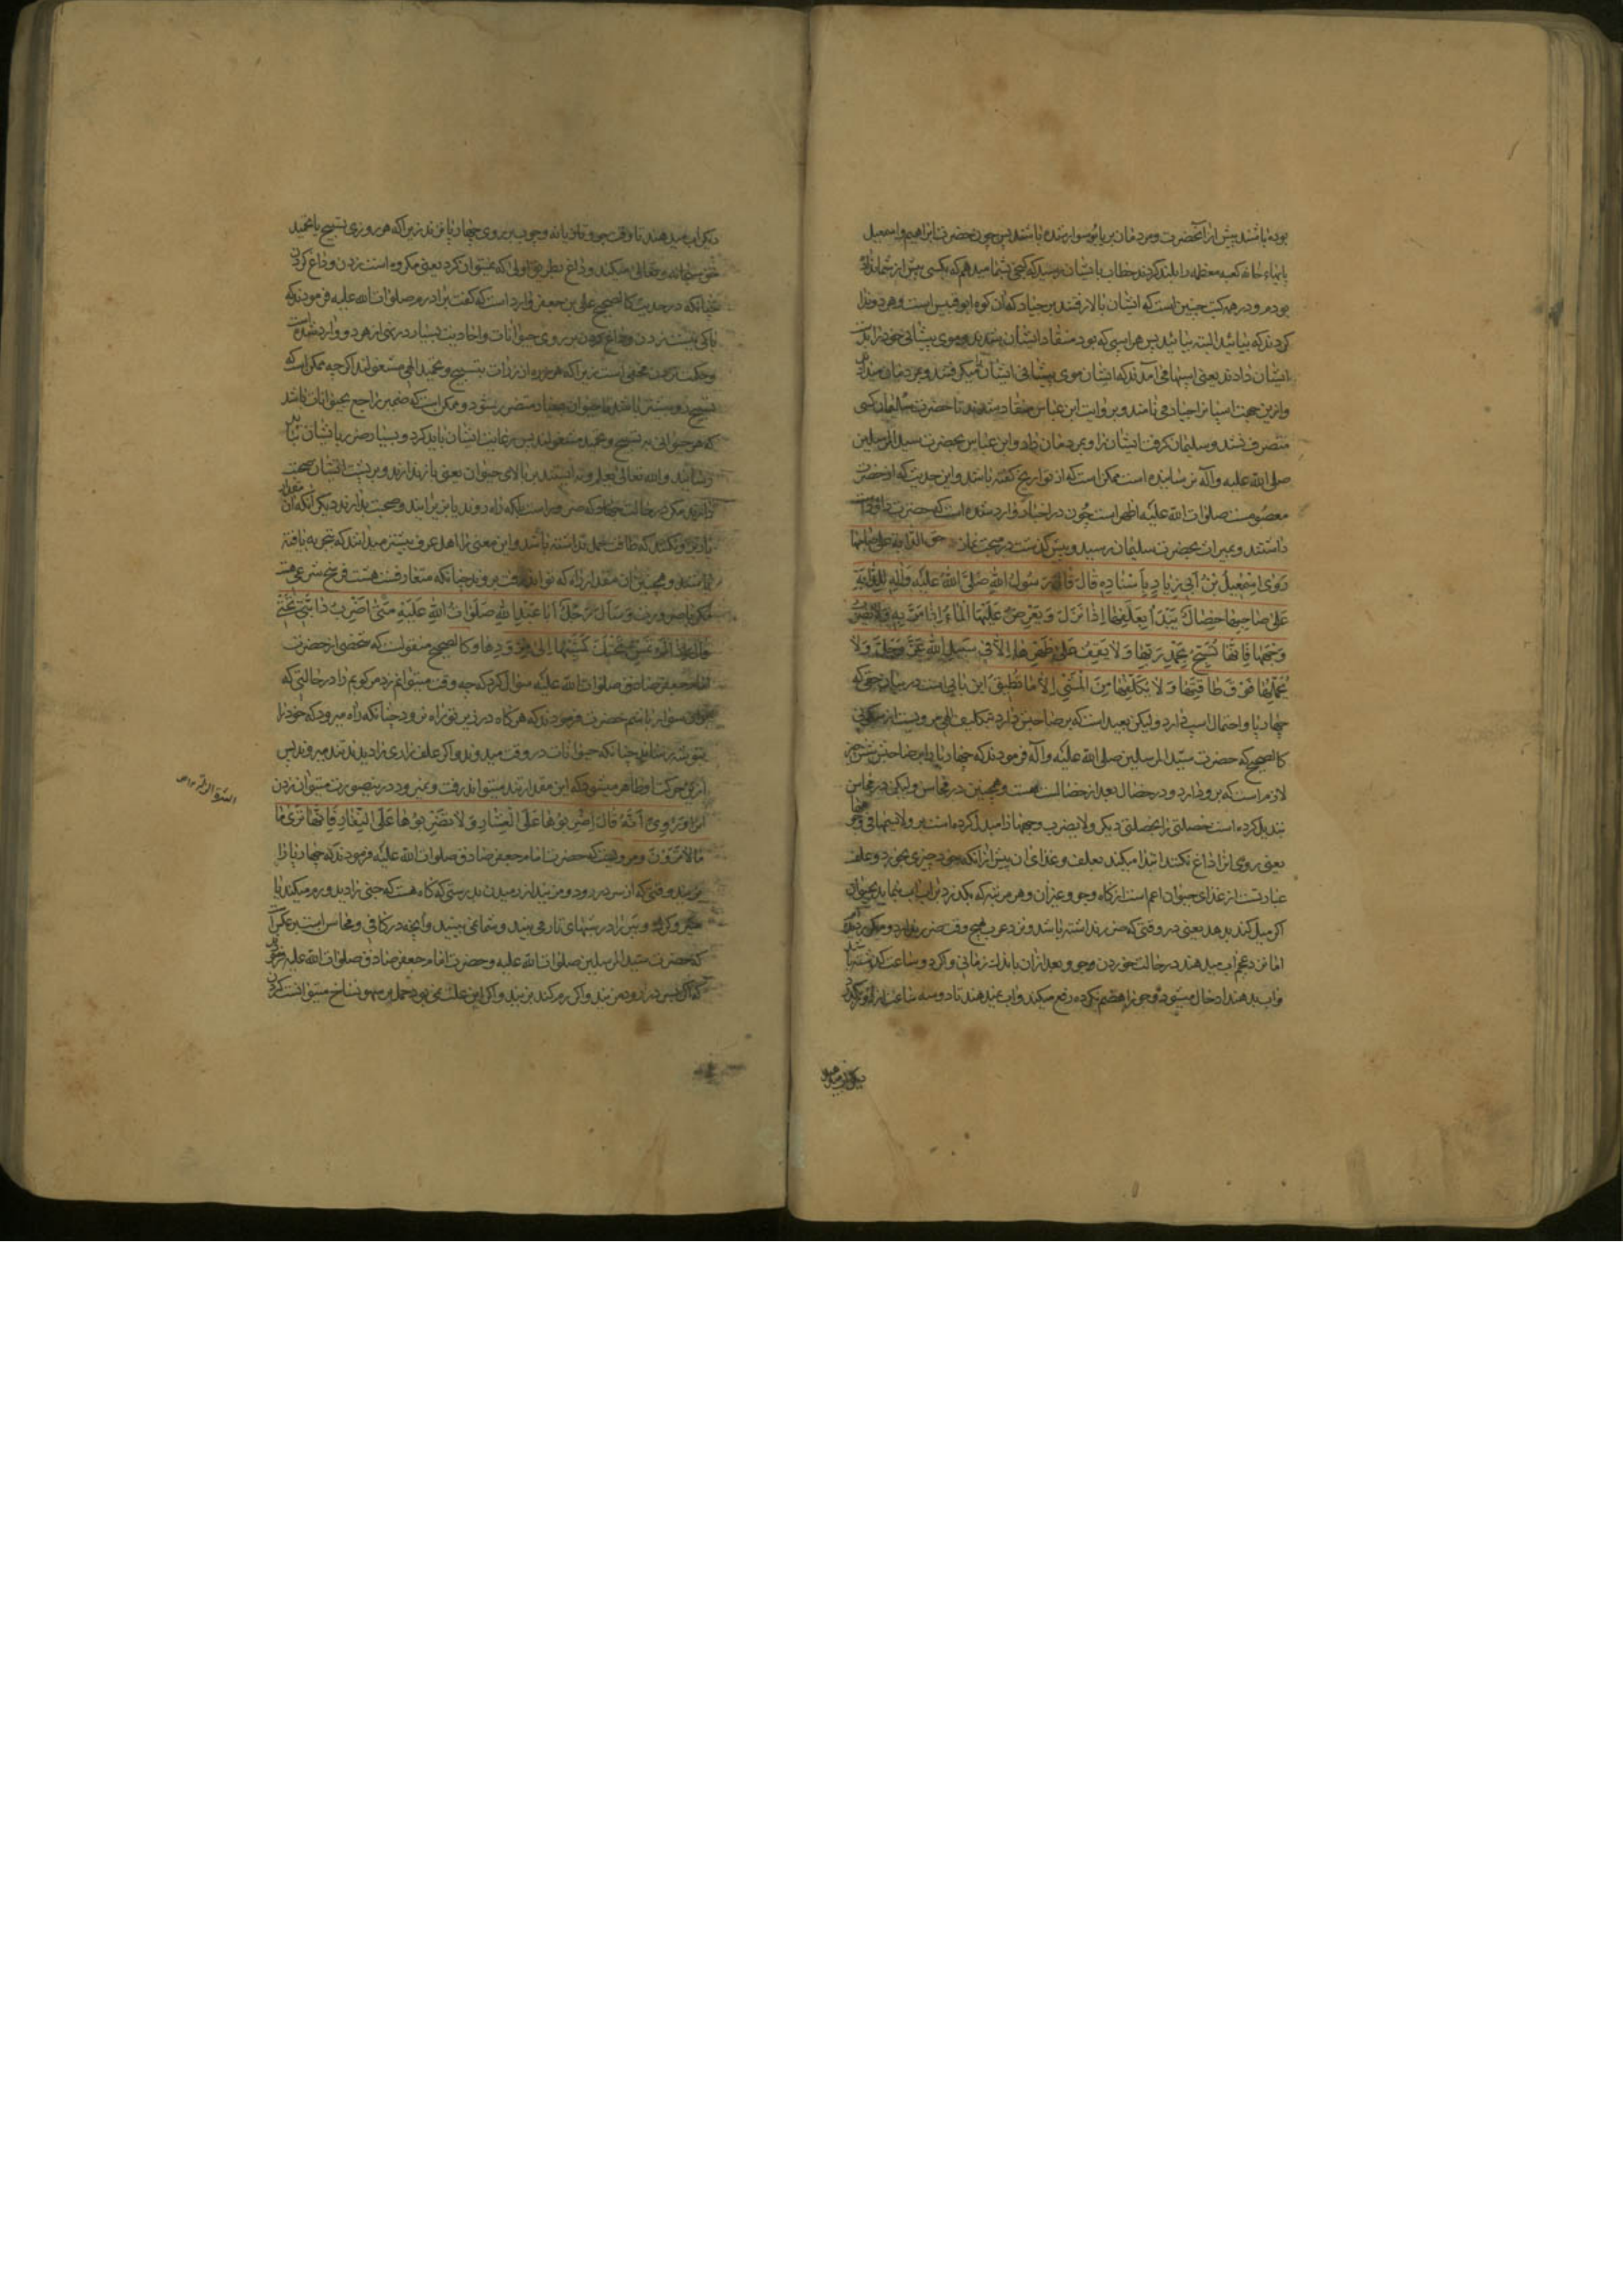 بوده باشند پیش از آنحضرت و مردمان بر یابو سوار شده باشند پس چون حضرت ابراهیم و اسمعیل
پایهاء خانه کعبه معظمه را بلند کردند خطاب بایشان رسید که گنجی بشما میدهم که بکسی پیش از شما نداده
بودم و در همه کتب چنین است که ایشان بالا رفتند بر جیاد که آن کوه ابو قبیس است و هر دو ندا
کردند که بیائید البته بیائید پس هر اسبی که بود منقاد ایشان شدند و موی پیشانی خود را بدست
ایشان دادند یعنی اسبها می آمدند که ایشان موی پیشانی ایشان را میگرفتند و بمردمان میداد
و ازین جهت اسپانرا جیاد می نامند و بروایت ابن عباس منقاد شدند تا حضرت سلیمان کسی
متصرف نشد و سلیمان گرفت ایشان را و بمردمان داد و ابن عباس بحضرت سید المرسلین
صلی الله علیه و آله نرسانیده است ممکن است که از تواریخ گفته باشد و این حدیث که از حضرت
معصومست صلوات الله علیه اظهر است چون در اخبار وارد شده است که حضرت داود
داشتند و بمیراث بحضرت سلیمان رسید و پیش گذشت در مبحث نماز حق الدابة علی صاحبها
رَوٰی اِسْمٰعِیلُ بْنُ اَبِی زِیَادٍ بِاَسْنَادِهِ قَالَ قَالَ رَسُولُ اللهِ صَلَّی اللهُ عَلَیْهِ وَاٰلِهِ لِلدَّابَّةِ
عَلٰی صَاحِبِهَا خِصَالٌ یَبْدَأُ بِعَلَفِهَا اِذَا نَزَلَ وَ یَعْرِضُ عَلَیْهَا الْمَاءَ اِذَا مَرَّ بِهِ وَلَا یَضْرِبُ
وَجْهَهَا فَاِنَّهَا تُسَبِّحُ بِحَمْدِ رَبِّهَا وَ لَا یَقِفُ عَلٰی ظَهْرِهَا اِلَّا فِی سَبِیلِ اللهِ عَزَّ وَجَلَّ وَ لَا
یُحَمِّلُهَا فَوْقَ طَاقَتِهَا وَ لَا یُکَلِّفُهَا مِنَ الْمَشْیِ اِلَّا مَا تُطِیقُ این بابی است در بیان حقی که
چهارپا و احتمال اسپ دارد ولیکن بعید است که بر صاحبش دارد بتکلیف الهی مرویست از سکونی
کالصحیح که حضرت سید المرسلین صلی الله علیه و آله فرمودند که چهارپا را بر صاحبش شش چیز
لازم است که برو دارد و در خصال بعد از خصال ست هست و همچنین در محاسن ولیکن در محاسن
تبدیل کرده است خصلتی را بخصلتی دیگر ولا یضرب وجهها را مبدل کرده است بر ولا یسمها فی وجوهها
یعنی روی او را داغ نکند ابتدا میکند بعلف و غذای آن پیش از آنکه خود چیزی بخورد و علف
عبارتست از غذای حیوان اعم است از کاه و جو و غیر آن و هر مرتبه که بگذرد بر آب آب بنماید بحیوان
اگر میل کند بدهد یعنی در وقتی که ضرر نداشته باشد و نزد عرب هیچ وقت ضرر ندارد و میگویند
اما نزد عجم آب میدهند در حالت خوردن و جو و بعد از آن باندک زمانی و اگر دو ساعت گذشته باشد
و آب بدهند اذخال میشود و جو را هضم نکرده رفع میکند و آب نمیدهند تا دو سه ساعت
دیگر آب میدهند
دیگر آب میدهند تا وقت جو و تازیانه و چوب بر روی چهارپا نزند زیرا که هر روزی تسبیح یا تحمید
حق سبحانه و تعالی میکند و داغ بطریق اولی که نمیتوان کرد یعنی مکروه است زدن و داغ کردن
چنانکه در حدیث کالصحیح علی بن جعفر وارد است که گفت برادرم صلوات الله علیه فرمودند که
باکی نیست زدن و داغ کردن بر روی حیوانات و احادیث بسیار در نهی از هر دو وارد شده است
و حکمت زدن مخفی است زیرا که هر ذره از ذرات بتسبیح و تحمید الهی مشغولند اگر چه ممکن است که
تسبیح رو بیشتر باشد یا حیوان بیشتر متضرر شود و ممکن است که ضمیر راجع بحیوانات باشد
که هر حیوانی بتسبیح و تحمید مشغولند پس رعایت ایشان باید کرد و بسیار ضرر بایشان نباید
رسانید والله تعالی یعلم و نه ایستند بر بالای حیوان یعنی باز ندارند و بر پشت ایشان صحبت
ندارند مگر در حالت جهاد که ضرور است بلکه راه روند یا بزیر آیند و صحبت بدارند دیگر آنکه آن مقدار
بار برو نکنند که طاقت حمل نداشته باشد و این معنی را اهل عرف بیشتر میدانند که تجربه یافته
باشند و همچنین آن مقدار راه که تواند رفت برود چنانکه متعارفست هشت فرسخ شرعی است
مگر بضرورت وَ سَأَلَ رَجُلٌ اَبَا عَبْدِ اللهِ صَلَوَاتُ اللهِ عَلَیْهِ مَتٰی اَضْرِبُ دَابَّتِی تَحْتِی
قَالَ اِذَا لَمْ تَمْشِ تَحْتَکَ کَمَشْیِهَا اِلٰی مِذْوَدِهَا و کالصحیح منقولست که شخصی از حضرت
امام جعفر صادق صلوات الله علیه سؤال کرد که چه وقت میتوانم زد مرکوبم را در حالتی که
بران سوار باشم حضرت فرمودند که هر گاه در زیر تو راه نرود چنانکه راه میرود که خود را
بتوبره رساند چنانکه حیوانات در وقت میدوند و اگر علف زاری را دیدند تند میروند پس
ازین حرکت او ظاهر میشود که این مقدار تند میتواند رفت و نمیرود درینصورت میتوان زدن
او را وَ رُوِیَ اَنَّهُ قَالَ اِضْرِبُوهَا عَلَی الْعِثَارِ وَ لَا تَضْرِبُوهَا عَلَی النِّفَارِ فَاِنَّهَا تَرٰی مَا
مَا لَا تَرَوْنَ و مرویست که حضرت امام جعفر صادق صلوات الله علیه فرمودند که چهارپا را
بزنید وقتی که از سر در رود و مزنید از رمیدن بدرستی که گاه هست که جنی را دید و رم میکند یا
و گرگ و ببر را در شبهای تار می بیند و شما نمی بینید و آنچه در کافی و محاسن است بر عکس است
که حضرت سید المرسلین صلوات الله علیه و حضرت امام جعفر صادق صلوات الله علیه فرمودند
که اگر بسر در رود مزنید و اگر رم کند بزنید و اگر این علت نمی بود حمل بر سهو نساخ میتوانست کردن